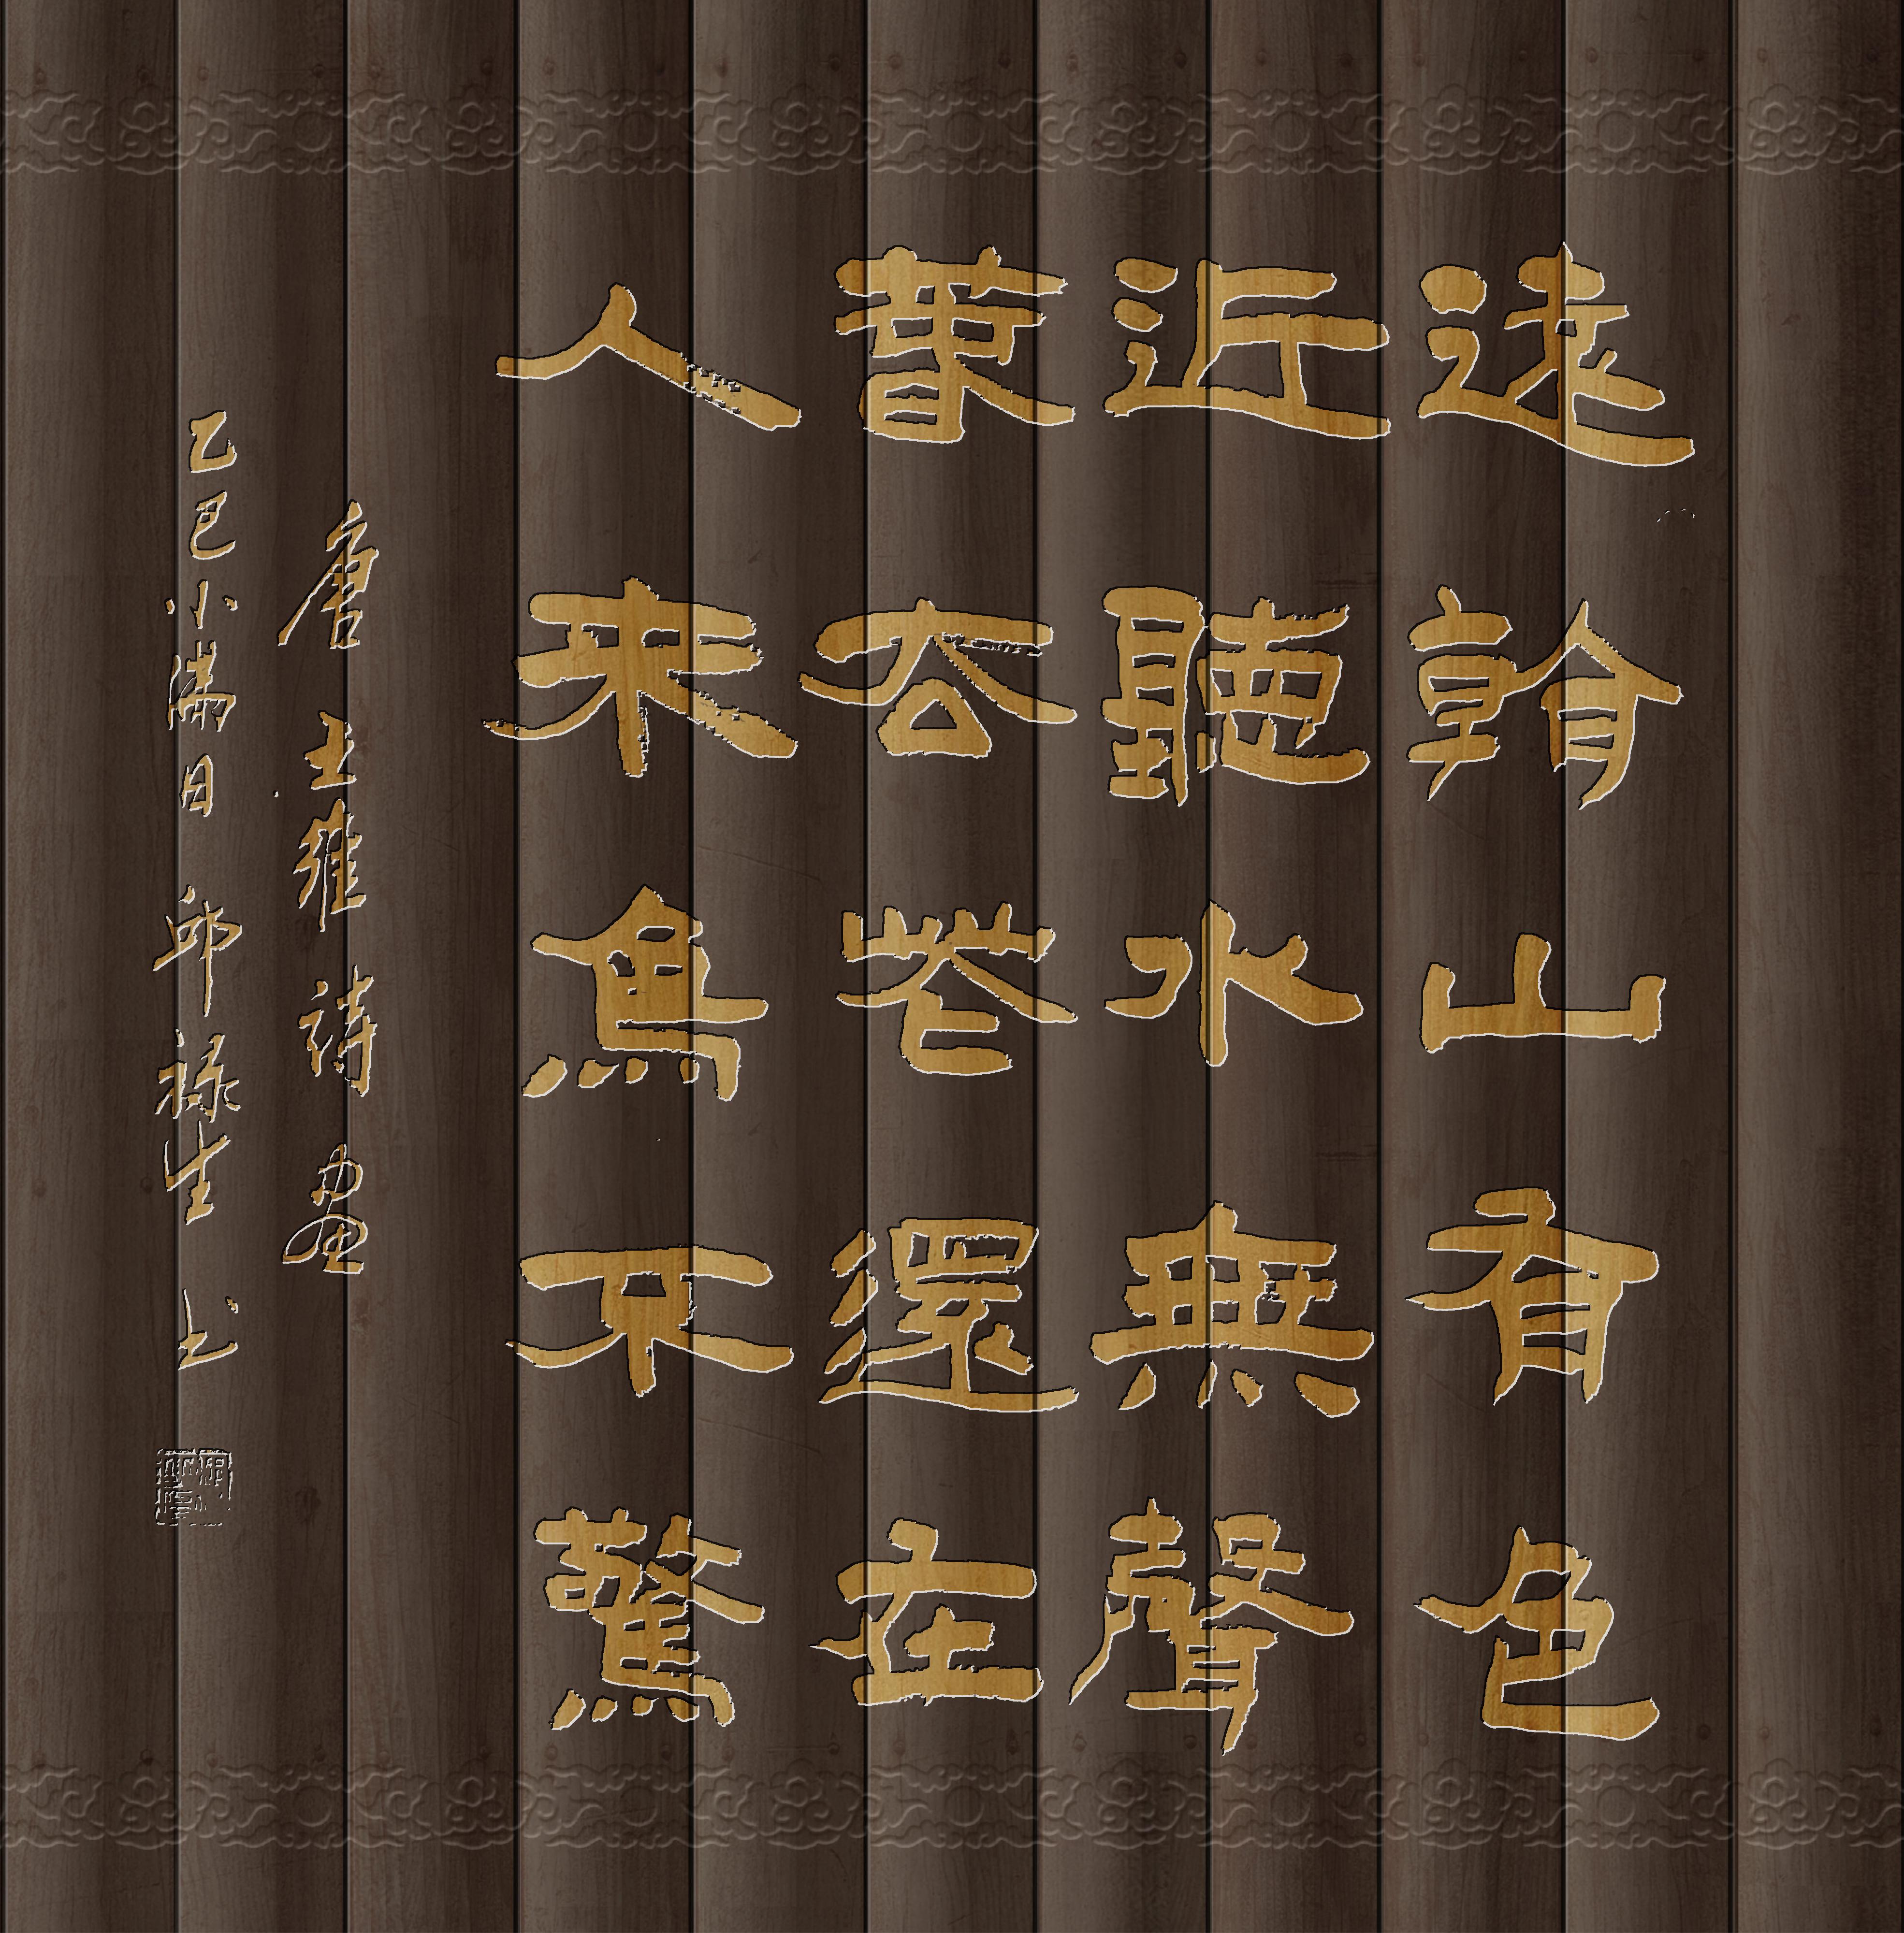 遠看山有色
近聽水無聲
春去花還在
人來鳥不驚
唐王維詩畫
乙巳小滿日邱祿生书